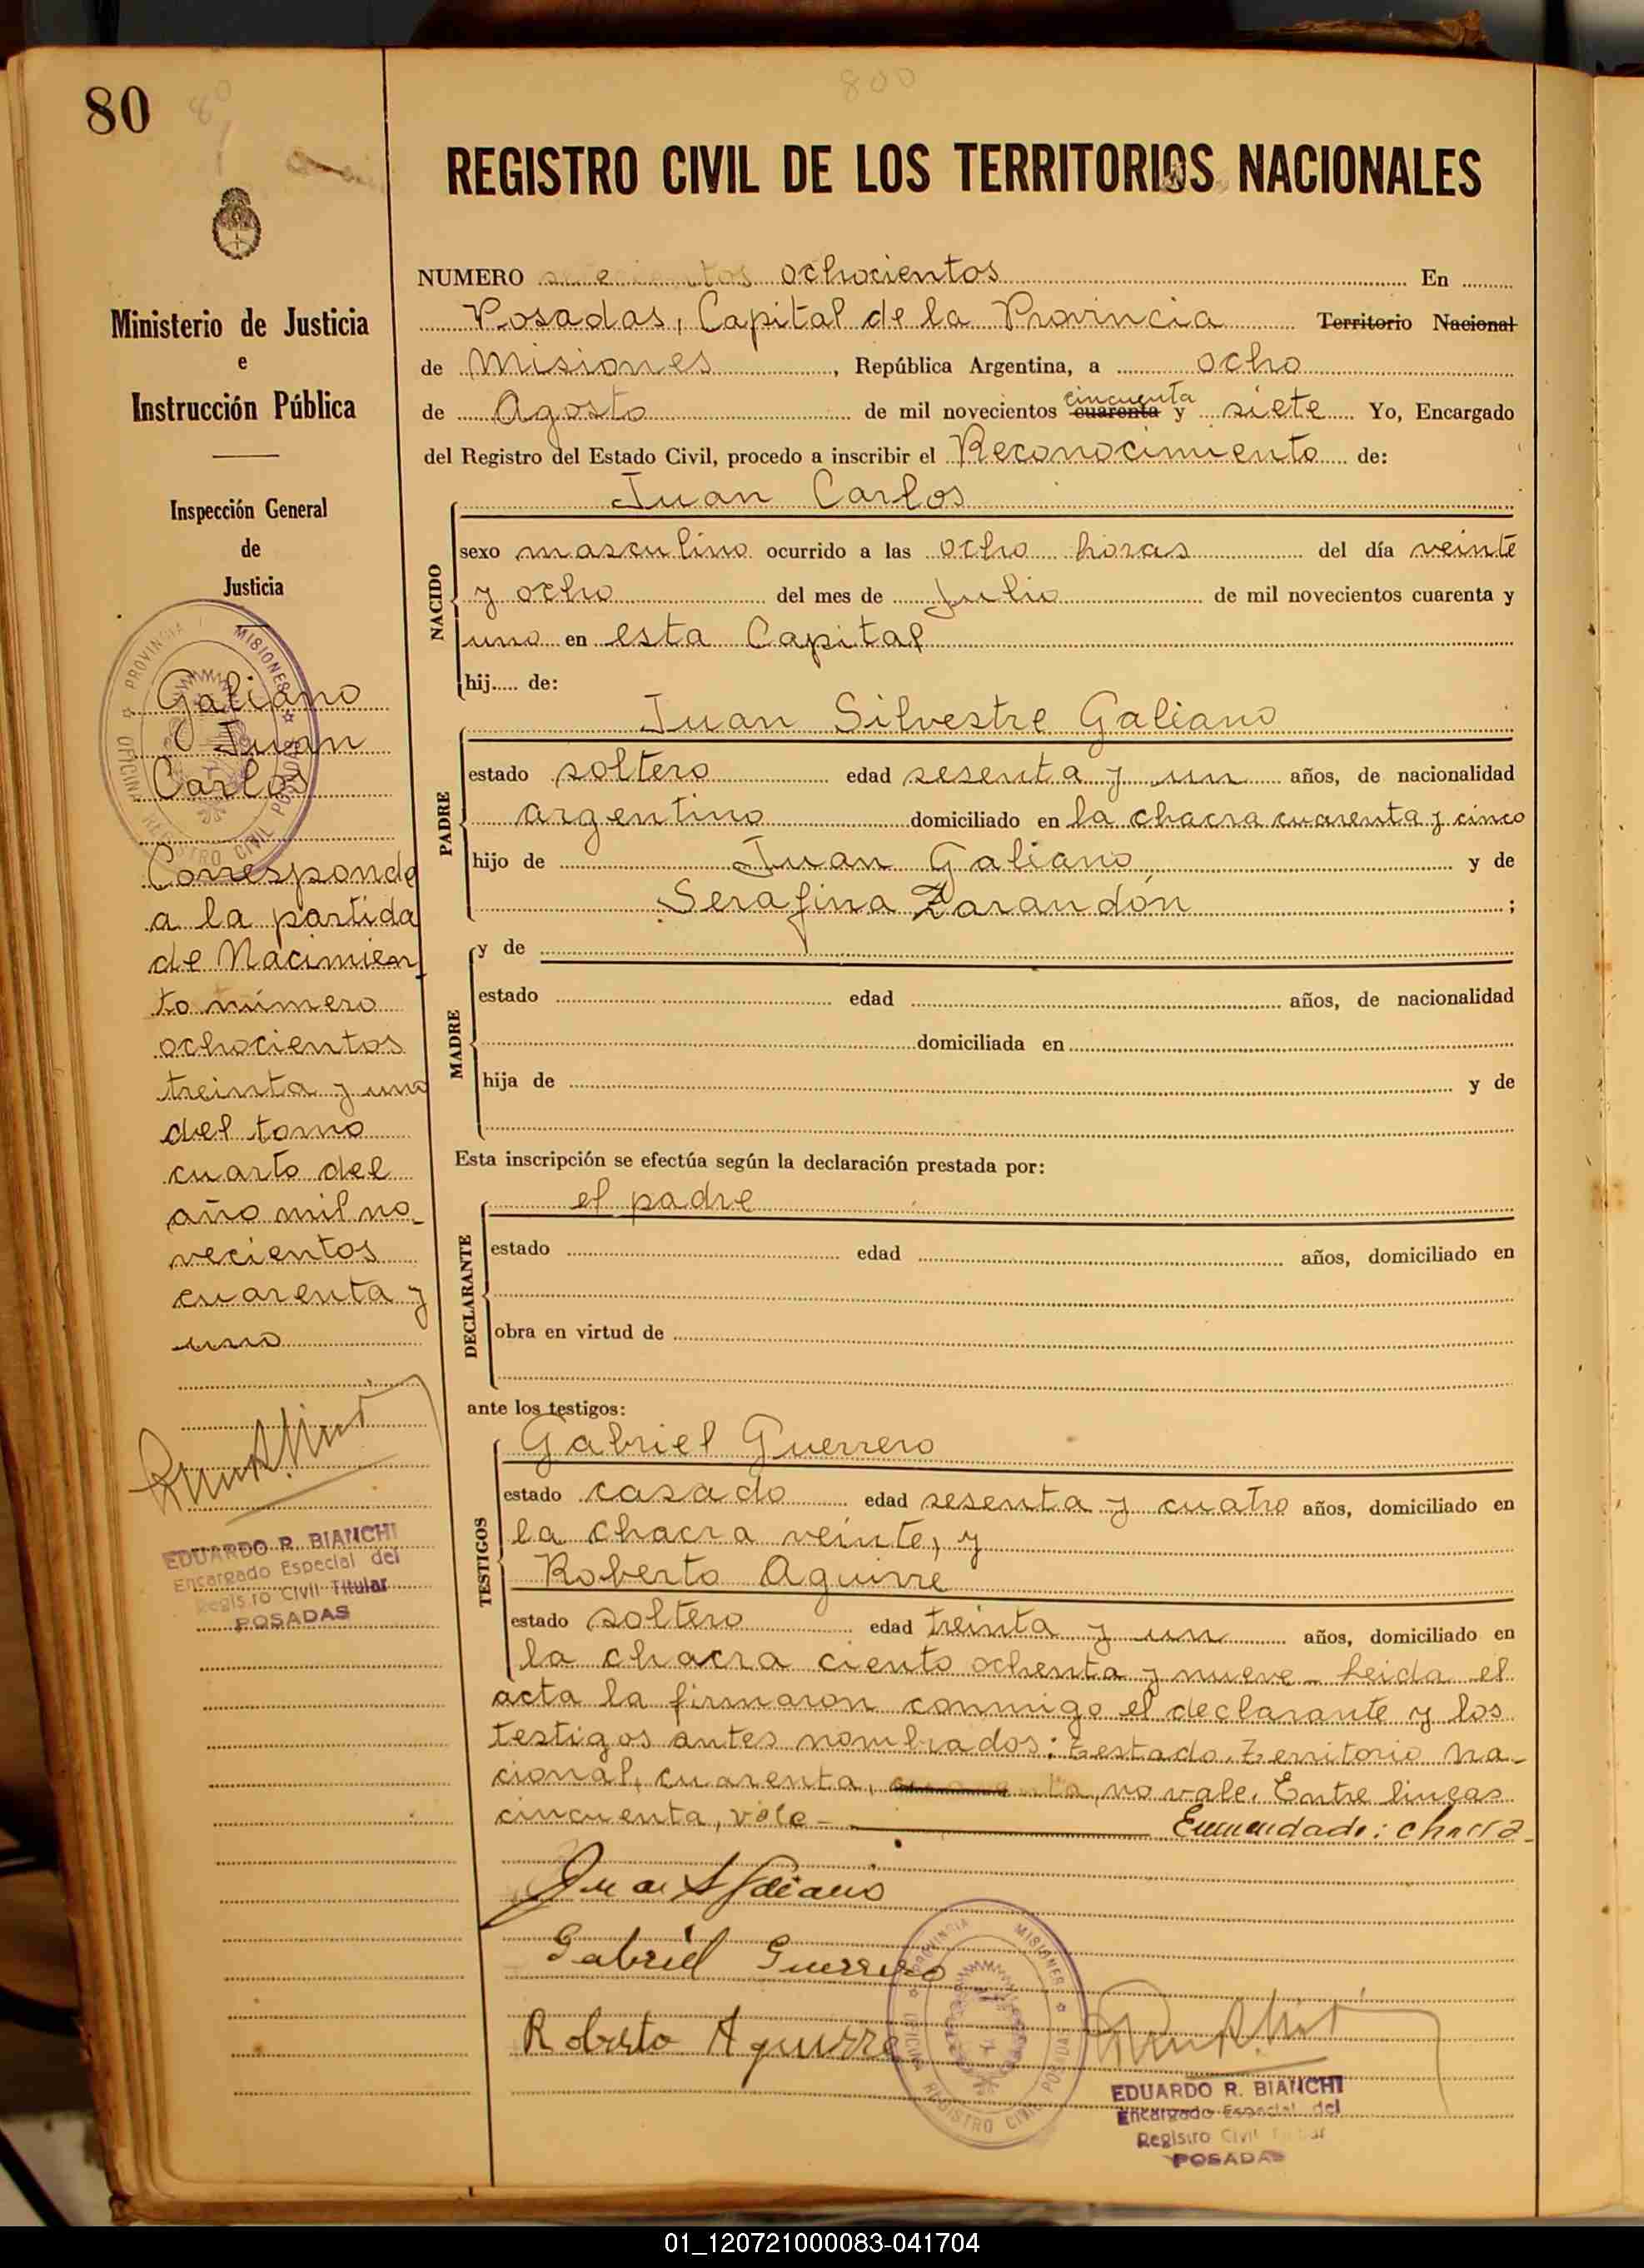 80
800
REGISTRO CIVIL DE LOS TERRITORIOS NACIONALES
Ministerio de Justicia
e
Instrucción Pública
Inspección General
de
Justicia
PROVINCIA MISIONES
OFICINA REGISTRO CIVIL POSADAS
Galiano
Juan
Carlos
Corresponde
a la partida
de Nacimien
to número
ochocientos
treinta y uno
del tomo
cuarto del
año mil no_
vecientos
cuarenta y
uno
EDUARDO R. BIANCHI
Encargado Especial del
Registro Civil Titular
POSADAS
NUMERO ochocientos En
Posadas, Capital de la Provincia Territorio Nacional
de Misiones, República Argentina, a ocho
cincuenta
de Agosto de mil novecientos cuarenta y siete Yo, Encargado
del Registro del Estado Civil, procedo a inscribir el Reconocimiento de:
Juan Carlos
NACIDO
sexo masculino ocurrido a las ocho horas del día veinte
y ocho del mes de Julio de mil novecientos cuarenta y
uno en esta Capital
hij..... de:
Juan Silvestre Galiano
PADRE
estado soltero edad sesenta y un años, de nacionalidad
argentino domiciliado en la chacra cuarenta y cinco
hijo de Juan Galiano y de
Serafina Zarandón ;
MADRE
y de
estado edad años, de nacionalidad
domiciliada en
hija de y de
Esta inscripción se efectúa según la declaración prestada por:
DECLARANTE
el padre
estado edad años, domiciliado en
obra en virtud de
ante los testigos:
TESTIGOS
Gabriel Guerrero
estado casado edad sesenta y cuatro años, domiciliado en
la chacra veinte, y
Roberto Aguirre
estado soltero edad treinta y un años, domiciliado en
la chacra ciento ochenta y nueve_ Leida el
acta la firmaron conmigo el declarante y los
testigos antes nombrados: Testado. Territorio na_
cional, cuarenta, no vale. Entre lineas
cincuenta, vale_ Enmendado: chacra_
Juan S Galiano
Gabriel Guerrero
Roberto Aguirre
PROVINCIA MISIONES
OFICINA REGISTRO CIVIL POSADAS
EDUARDO R. BIANCHI
Encargado Especial del
Registro Civil
POSADAS
01_120721000083-041704